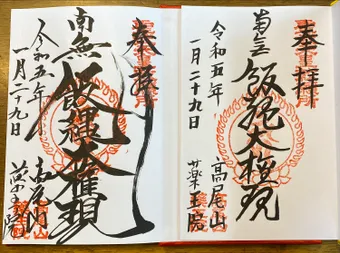 奉拝
南無飯縄大権現
令和五年
一月二十九日
高尾山
薬王院
奉拝
南無飯縄大権現
令和五年
一月二十九日
高尾山
薬王院